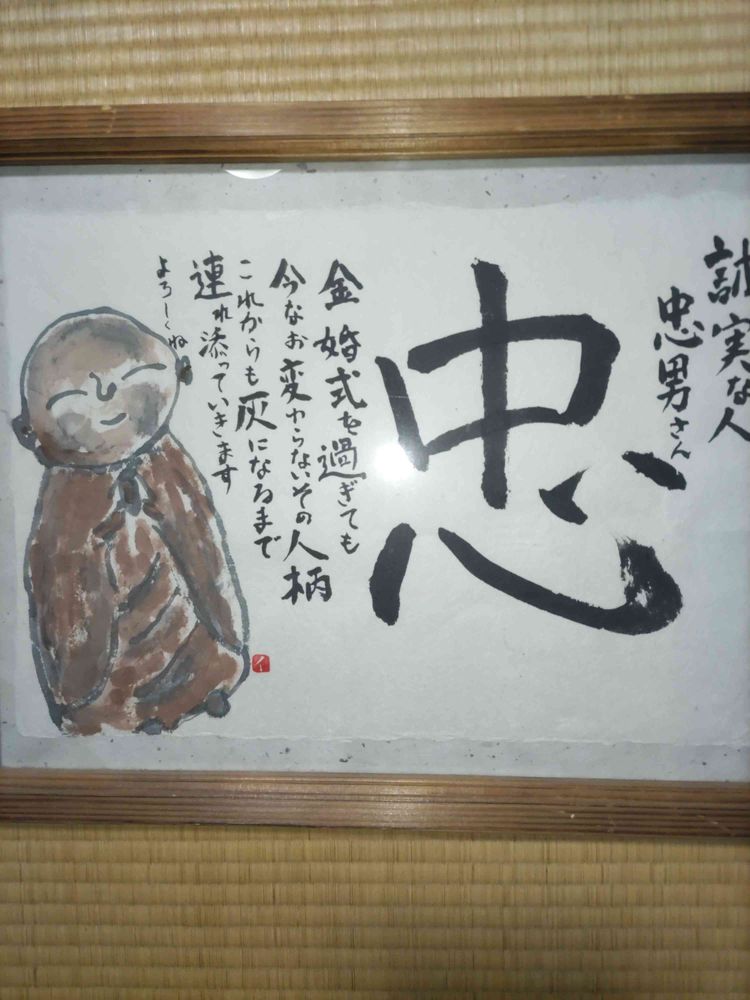 誠実な人
忠男さん
忠
金婚式を過ぎても
今なお変わらないその人柄
これからも灰になるまで
連れ添っていきます
よろしくね
イ